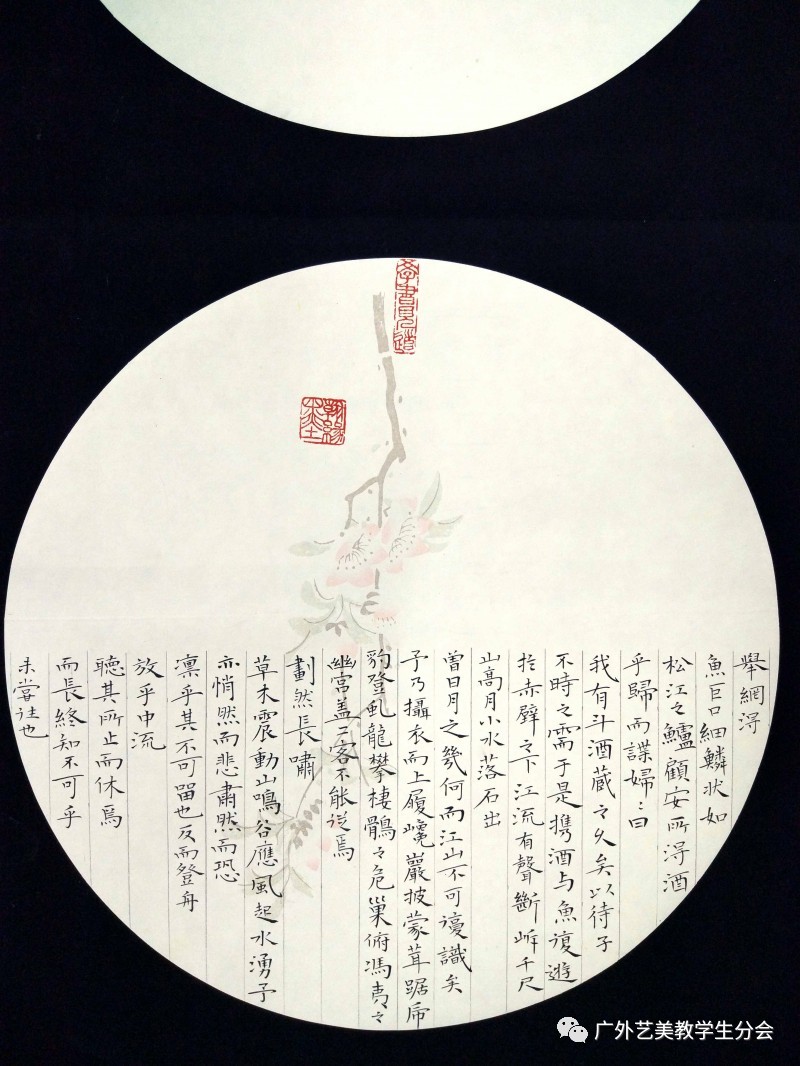 舉網得
魚巨口細鱗狀如
松江之鱸顧安所得酒
乎歸而謀婦〻曰
我有斗酒藏之久矣以待子
不時之需于是携酒与魚復遊
於赤壁之下江流有聲斷岸千尺
山高月小水落石出
曾日月之幾何而江山不可復識矣
予乃攝衣而上履巉巖披蒙茸踞虎
豹登虬龍攀棲鶻之危巢俯馮夷之
幽宮盖二客不能從焉
劃然長嘯
草木震動山鳴谷應風起水湧予
亦悄然而悲肅然而恐
凛乎其不可留也反而登舟
放乎中流
聽其所止而休焉
而長終知不可乎
未嘗往也
广外艺美教学生分会